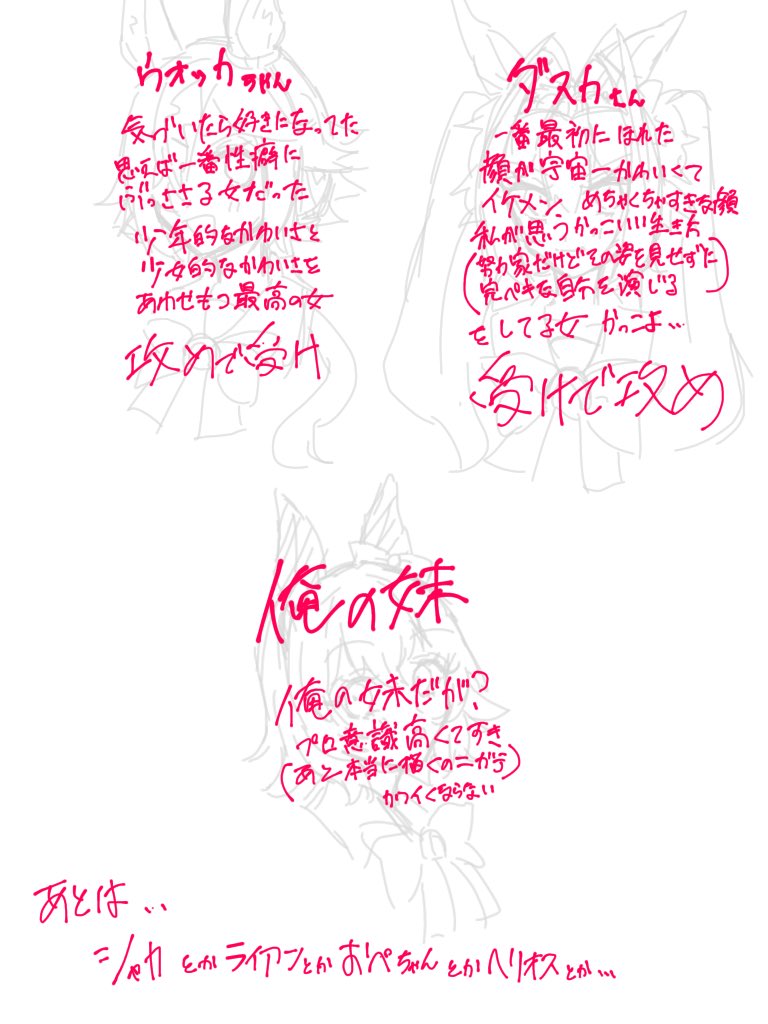 ウオッカちゃん
気づいたら好きになってた
思えば一番性癖に
ぶっささる女だった
少年的なかわいさと
少女的なかわいさを
あわせもつ最高の女
攻めで受け
ダスカさん
一番最初にほれた
顔が宇宙一かわいくて
イケメン、めちゃくちゃすきな顔
私が思うかっこいい生き方
(努力家だけどその姿を見せずに
完ペキな自分を演じる)
をしてる女 かっこよ…
受けで攻め
俺の妹
俺の妹だが?
プロ意識高くてすき
(あと本当に描くのニガテ)
カワイくならない
あとは…
シャカとかライアンとかおぺちゃんとかヘリオスとか…